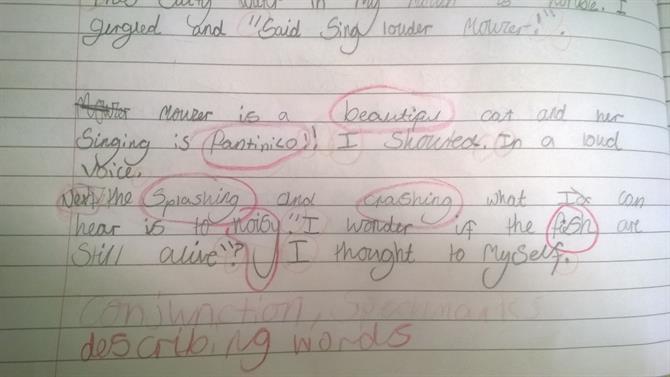 in my
gergled and "Said Sing louder Mowzer."
Mowzer is a beautiful cat and her
Singing is fantinico!! I Shouted. In a loud
voice.
Next the Splashing and crashing what I can
hear is to noisy "I wonder if the fish are
Still alive"? I thought to Myself.
Conjunction, Speechmarks
describing words